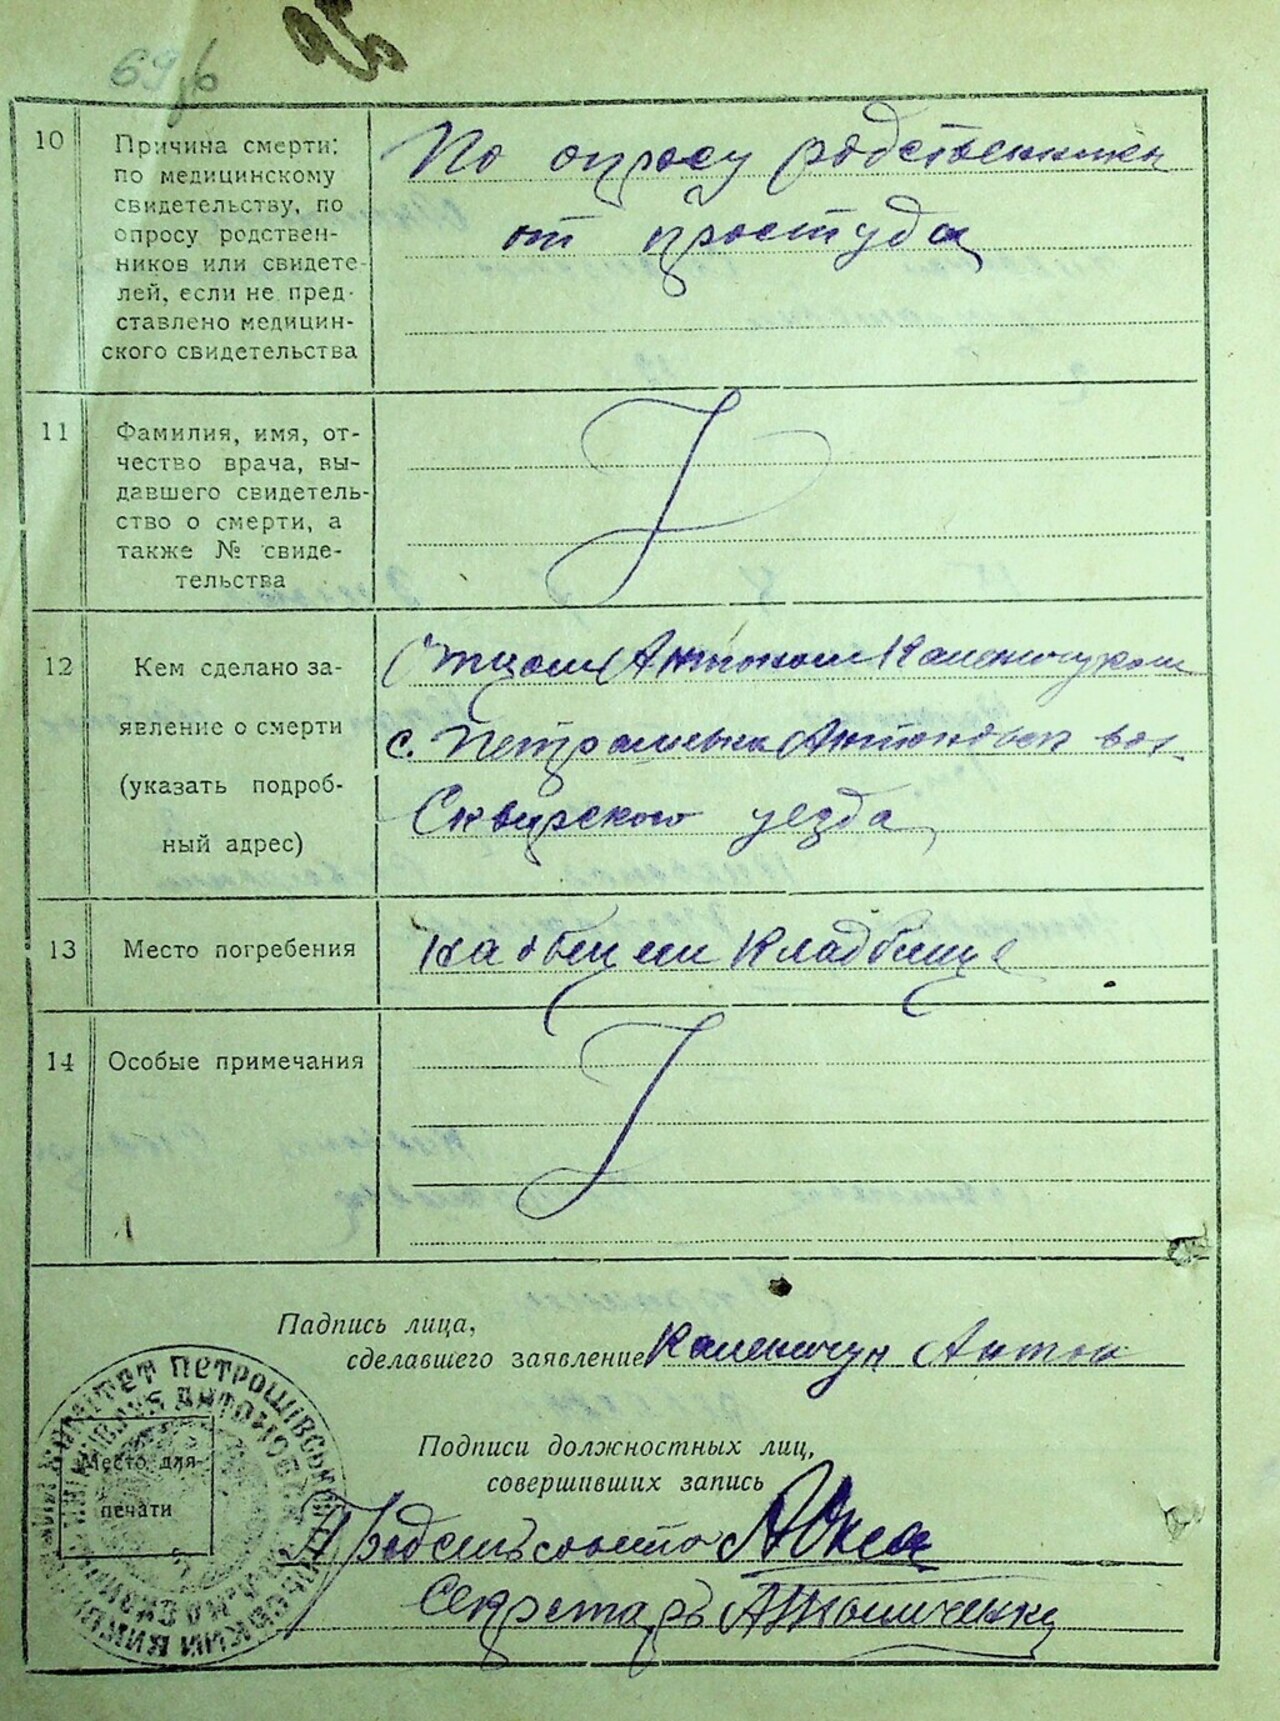 69 об
10
Причина смерти:
по медицинскому
свидетельству, по
опросу родствен-
ников или свидете-
лей, если не пред-
ставлено медицин-
ского свидетельства
По опросу родственников
от простуда
11
Фамилия, имя, от-
чество врача, вы-
давшего свидетель-
ство о смерти, а
также № свиде-
тельства
12
Кем сделано за-
явление о смерти
(указать подроб-
ный адрес)
Отцом Антоном Каленчуком
с. Антоновск вол.
Сквирского уезда
13
Место погребения
на общем кладбище
14
Особые примечания
Падпись лица,
сделавшего заявление
Каленчук Антон
Подписи должностных лиц,
совершивших запись
Место для
печати
Предсельсовета
Секретарь